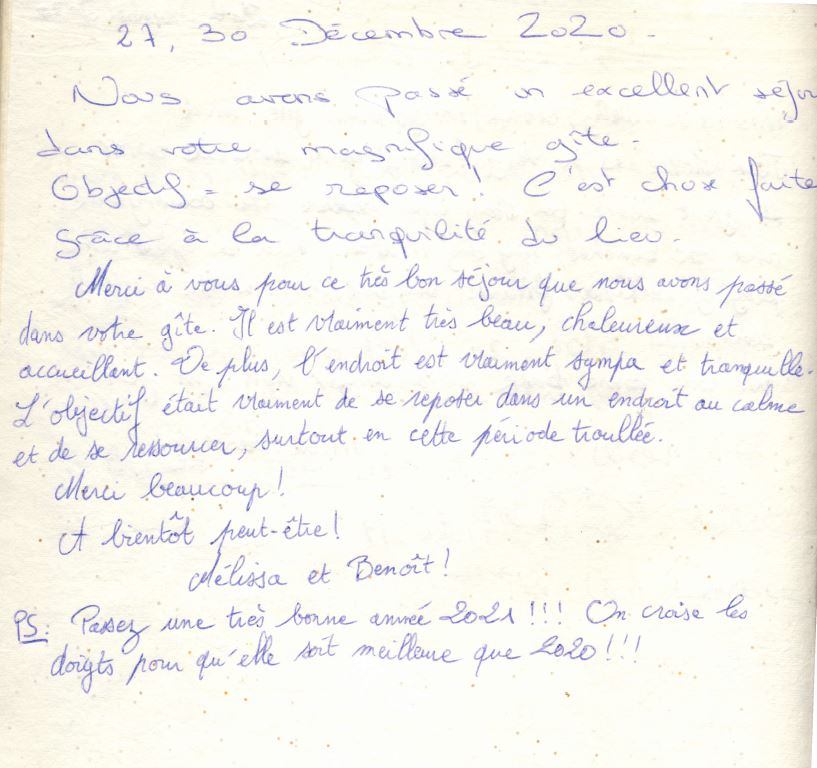 27, 30 Décembre 2020.
Nous avons passé un excellent séjour
dans votre magnifique gîte.
Objectif = se reposer! C'est chose faite
grâce à la tranquilité du lieu.
Merci à vous pour ce très bon séjour que nous avons passé
dans votre gîte. Il est vraiment très beau, chaleureux et
accueillant. De plus, l'endroit est vraiment sympa et tranquille.
L'objectif était vraiment de se reposer dans un endroit au calme
et de se ressourcer, surtout en cette période troublée.
Merci beaucoup!
A bientôt peut-être!
Mélissa et Benoît!
PS: Passez une très bonne année 2021!!! On croise les
doigts pour qu'elle soit meilleure que 2020!!!